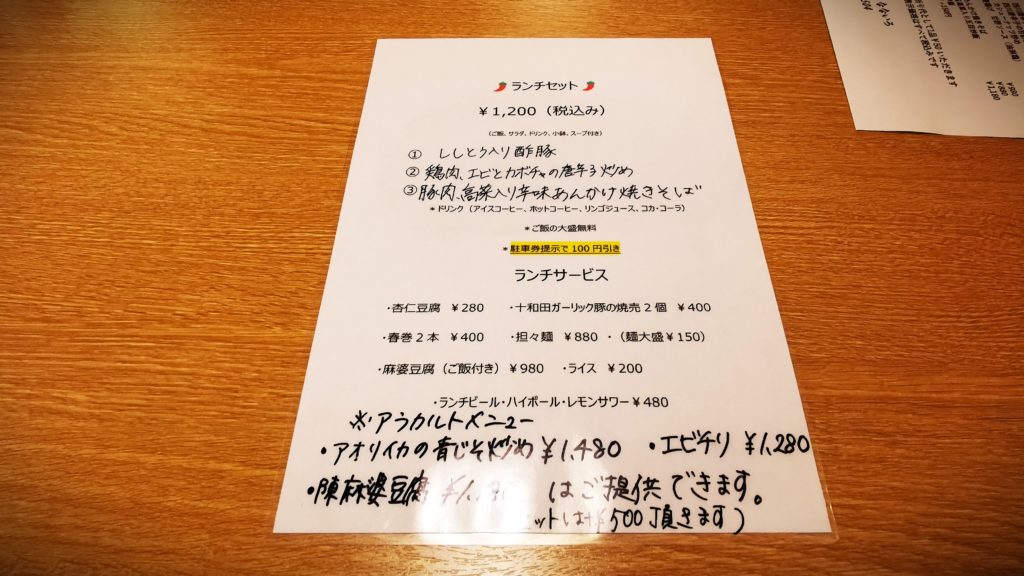 ランチセット
￥1,200（税込み）
（ご飯、サラダ、ドリンク、小鉢、スープ付き）
① ししとう入り酢豚
② 鶏肉、エビとカボチャの唐辛子炒め
③ 豚肉、高菜入り辛味あんかけ焼きそば
＊ドリンク（アイスコーヒー、ホットコーヒー、リンゴジュース、コカ・コーラ）
＊ご飯の大盛無料
＊駐車券提示で100円引き
ランチサービス
・杏仁豆腐 ￥280 ・十和田ガーリック豚の焼売2個 ￥400
・春巻2本 ￥400 ・担々麺 ￥880 ・（麺大盛￥150）
・麻婆豆腐（ご飯付き）￥980 ・ライス ￥200
・ランチビール・ハイボール・レモンサワー￥480
※・アラカルトメニュー
・アオリイカの青じそ炒め ￥1,480 ・エビチリ ￥1,280
・陳麻婆豆腐 はご提供できます。
セットは+￥500頂きます）
￥980
￥680
￥1,180